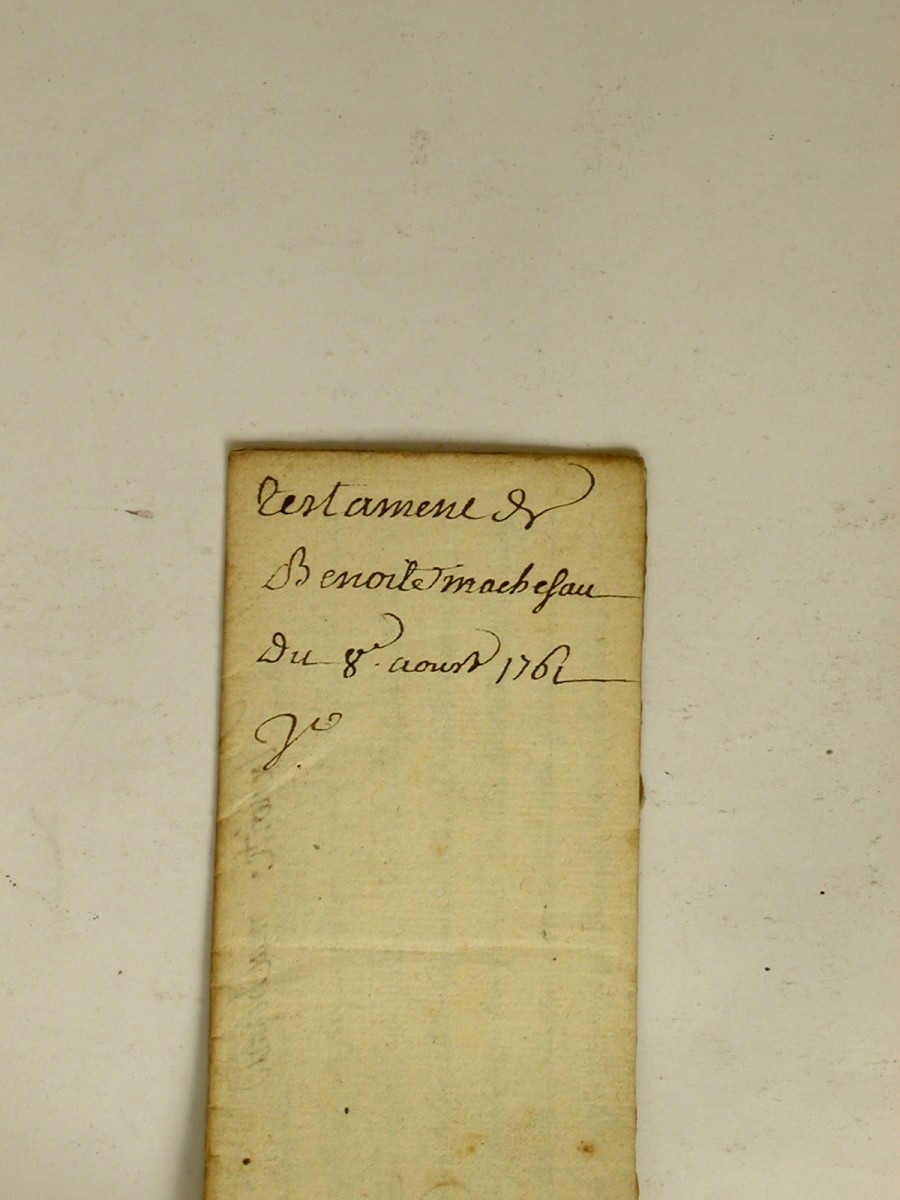 Testament de
Benoite machesau
du 8e. aoust 1761